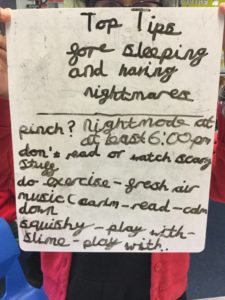 Top Tips
fore sleeping
and having
nightmares
pinch? Nightmode at
at least 6:00pm
don's read or watch scary
stuff
do exercise-fresh air
music (caalm-read-calm
down
squishy-play with-
slime-play with..